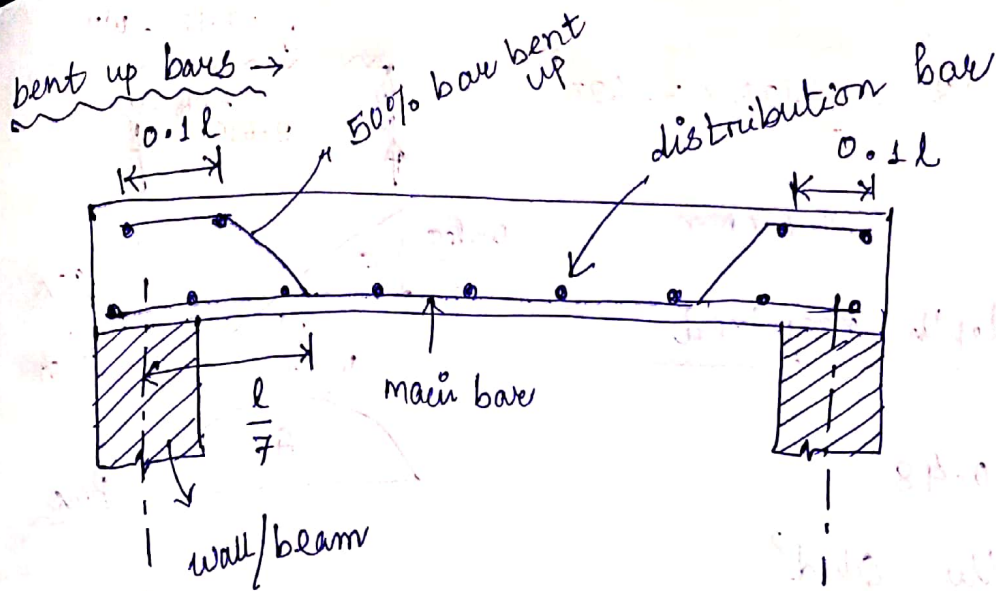 bent up bars →
0.1 l
50% bar bent
up
distribution bar
0.1 l
l
7
main bar
wall/beam